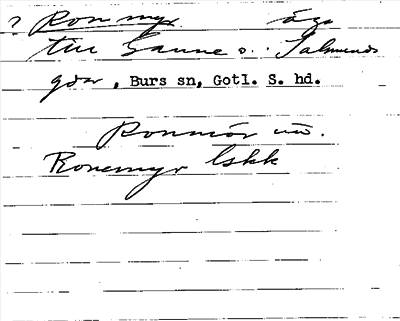 ? Ronmyr. äga
till Sanne o. Salmunds
gdar, Burs sn, Gotl. S. hd.
Ronmör uw.
Ronemyr Gskk